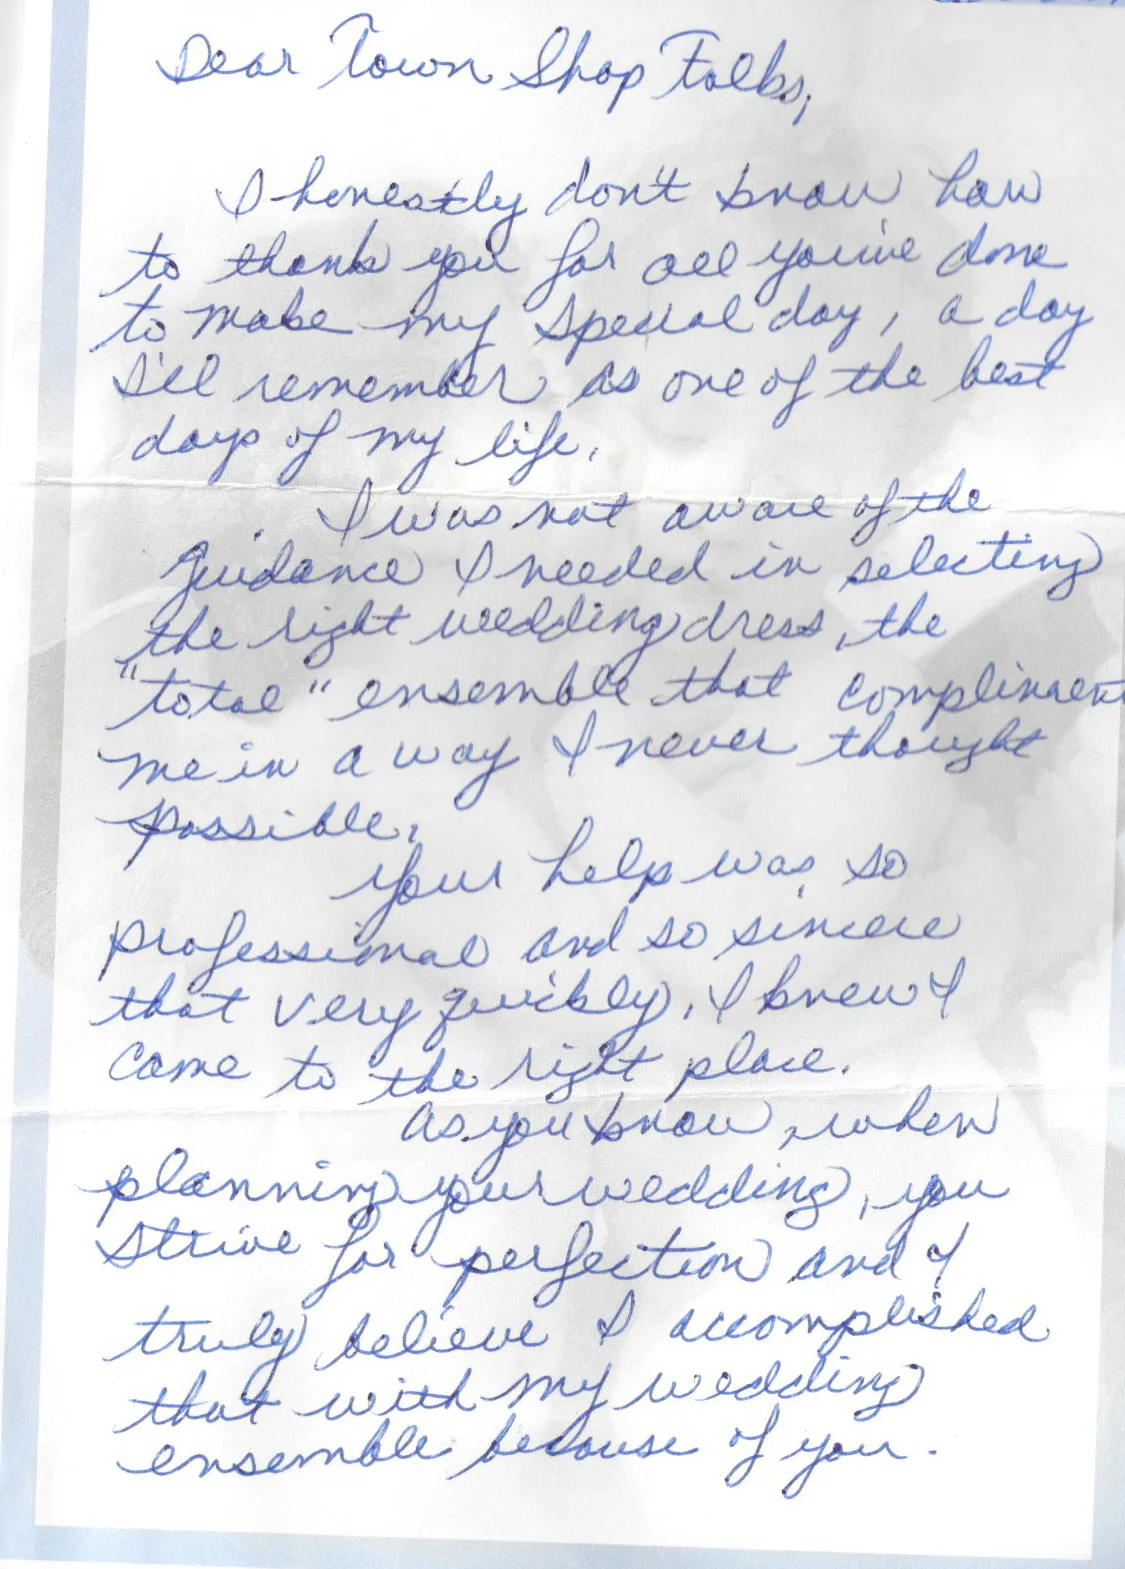 Dear Town Shop Folks,
I honestly don't know how
to thank you for all you've done
to make my special day, a day
I'll remember as one of the best
days of my life.
I was not aware of the
guidance I needed in selecting
the right wedding dress, the
"total" ensemble that compliment
me in a way I never thought
possible.
Your help was so
professional and so sincere
that very quickly, I knew I
came to the right place.
As you know, when
planning your wedding, you
strive for perfection and I
truly believe I accomplished
that with my wedding
ensemble because of you.